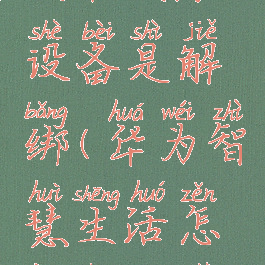 shè bèi shì jiě
设备是解
bǎng huá wéi zhì
绑(华为智
huì shēng huó zěn
慧生活怎